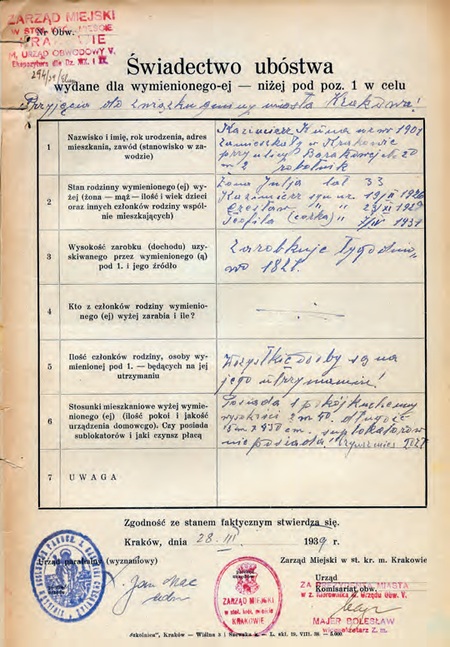 ZARZĄD MIEJSKI
W STOŁ. KRÓL. MIEŚCIE
KRAKOWIE
Nr Obw.
M. URZĄD OBWODOWY V.
Ekspozytura dla Dz. XX. i IX.
Świadectwo ubóstwa
wydane dla wymienionego-ej — niżej pod poz. 1 w celu
Przyjęcia do związku gminy miasta Krakowa!
1
Nazwisko i imię, rok urodzenia, adres
mieszkania, zawód (stanowisko w za-
wodzie)
Kazimierz ur w 1901
Zamieszkały w Krakowie
przy ulicy Barakowej L. 20
m 2 robotnik
2
Stan rodzinny wymienionego (ej) wy-
żej (żona — mąż — ilość i wiek dzieci
oraz innych członków rodziny wspól-
nie mieszkających)
Żona Julja lat 33
Kazimierz syn ur
Czesław " "
(córka) " "
3
Wysokość zarobku (dochodu) uzy-
skiwanego przez wymienionego (ą)
pod 1. i jego źródło
Zarobkuje tygodnio-
wo 18zł.
4
Kto z członków rodziny wymienio-
nego (ej) wyżej zarabia i ile?
5
Ilość członków rodziny, osoby wy-
mienionej pod 1. — będących na jej
utrzymaniu
Wszystkie osoby są na
jego utrzymaniu!
6
Stosunki mieszkaniowe wyżej wymie-
nionego (ej) (ilość pokoi i jakość
urządzenia domowego). Czy posiada
sublokatorów i jaki czynsz płacą
Posiada 1 pokój kuchenny
wysokości 2 m 40. długości
5m x 430 cm. suplokatorów
nie posiada.
7
UWAGA
Zgodność ze stanem faktycznym stwierdza się.
Kraków, dnia 28 III. 1939 r.
Urząd parafialny (wyznaniowy)
Zarząd Miejski w st. kr. m. Krakowie
Urząd
Komisariat obw.
ZARZĄD MIEJSKI
w stoł. król. mieście
KRAKOWIE
w z. Kierownika M. Urzędu Obw. V.
MAJER BOLESŁAW
wicesekretarz Z. m.
„Szkolnica", Kraków —